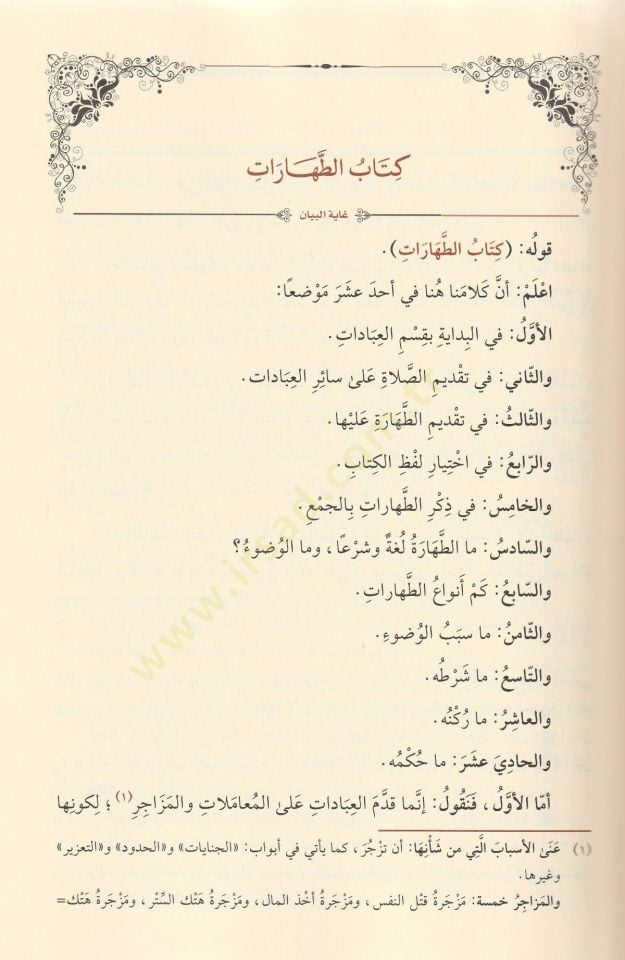 كِتَابُ الطَّهَارَاتِ
غاية البيان
قولُه: (كِتَابُ الطَّهَارَاتِ).
اعْلَمْ: أنَّ كلامَنا هُنا في أحدَ عشَرَ مَوْضعًا:
الأوَّلُ: في البِدايةِ بقِسْمِ العِباداتِ.
والثّاني: في تقْديمِ الصَّلاةِ علىٰ سائِرِ العِبادات.
والثّالثُ: في تقْديمِ الطَّهَارَةِ عَليْها.
والرّابعُ: في اخْتِيارِ لفْظِ الكِتابِ.
والخامِسُ: في ذِكْرِ الطَّهاراتِ بِالجمْعِ.
والسّادسُ: ما الطَّهَارَةُ لُغةً وشرْعًا، وما الوُضوءُ؟
والسّابعُ: كَمْ أَنواعُ الطَّهاراتِ.
والثّامنُ: ما سبَبُ الوُضوءِ.
والتّاسعُ: ما شَرْطُه.
والعاشِرُ: ما رُكْنُه.
والحاديَ عشَرَ: ما حُكْمُه.
أمّا الأوَّلُ، فنَقُولُ: إنَّما قدَّمَ العِباداتِ علىٰ المُعاملاتِ والمَزَاجِرِ(١)؛ لِكونِها
(١) عَنَىٰ الأسبابَ الَّتِي من شَأْنِهَا: أن تزْجُرَ، كما يأتي في أبواب: «الجنايات» و«الحدود» و«التعزير»
وغيرها.
والمَزاجِرُ خمسة: مَزْجَرةُ قتْل النفس، ومَزْجَرةُ أخْذ المال، ومَزْجَرةُ هَتْك السِّتْر، ومَزْجَرةُ هَتْك=